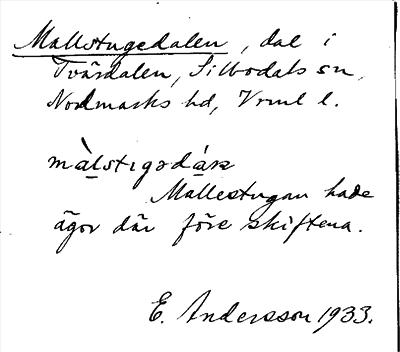 Mallstugedalen, dal i
Tvärdalen, Silbodals sn,
Nordmarks hd, Vrml l.
màlstıgədáɴ
Mallestugan hade
ägor där före skiftena.
E. Andersson 1933.